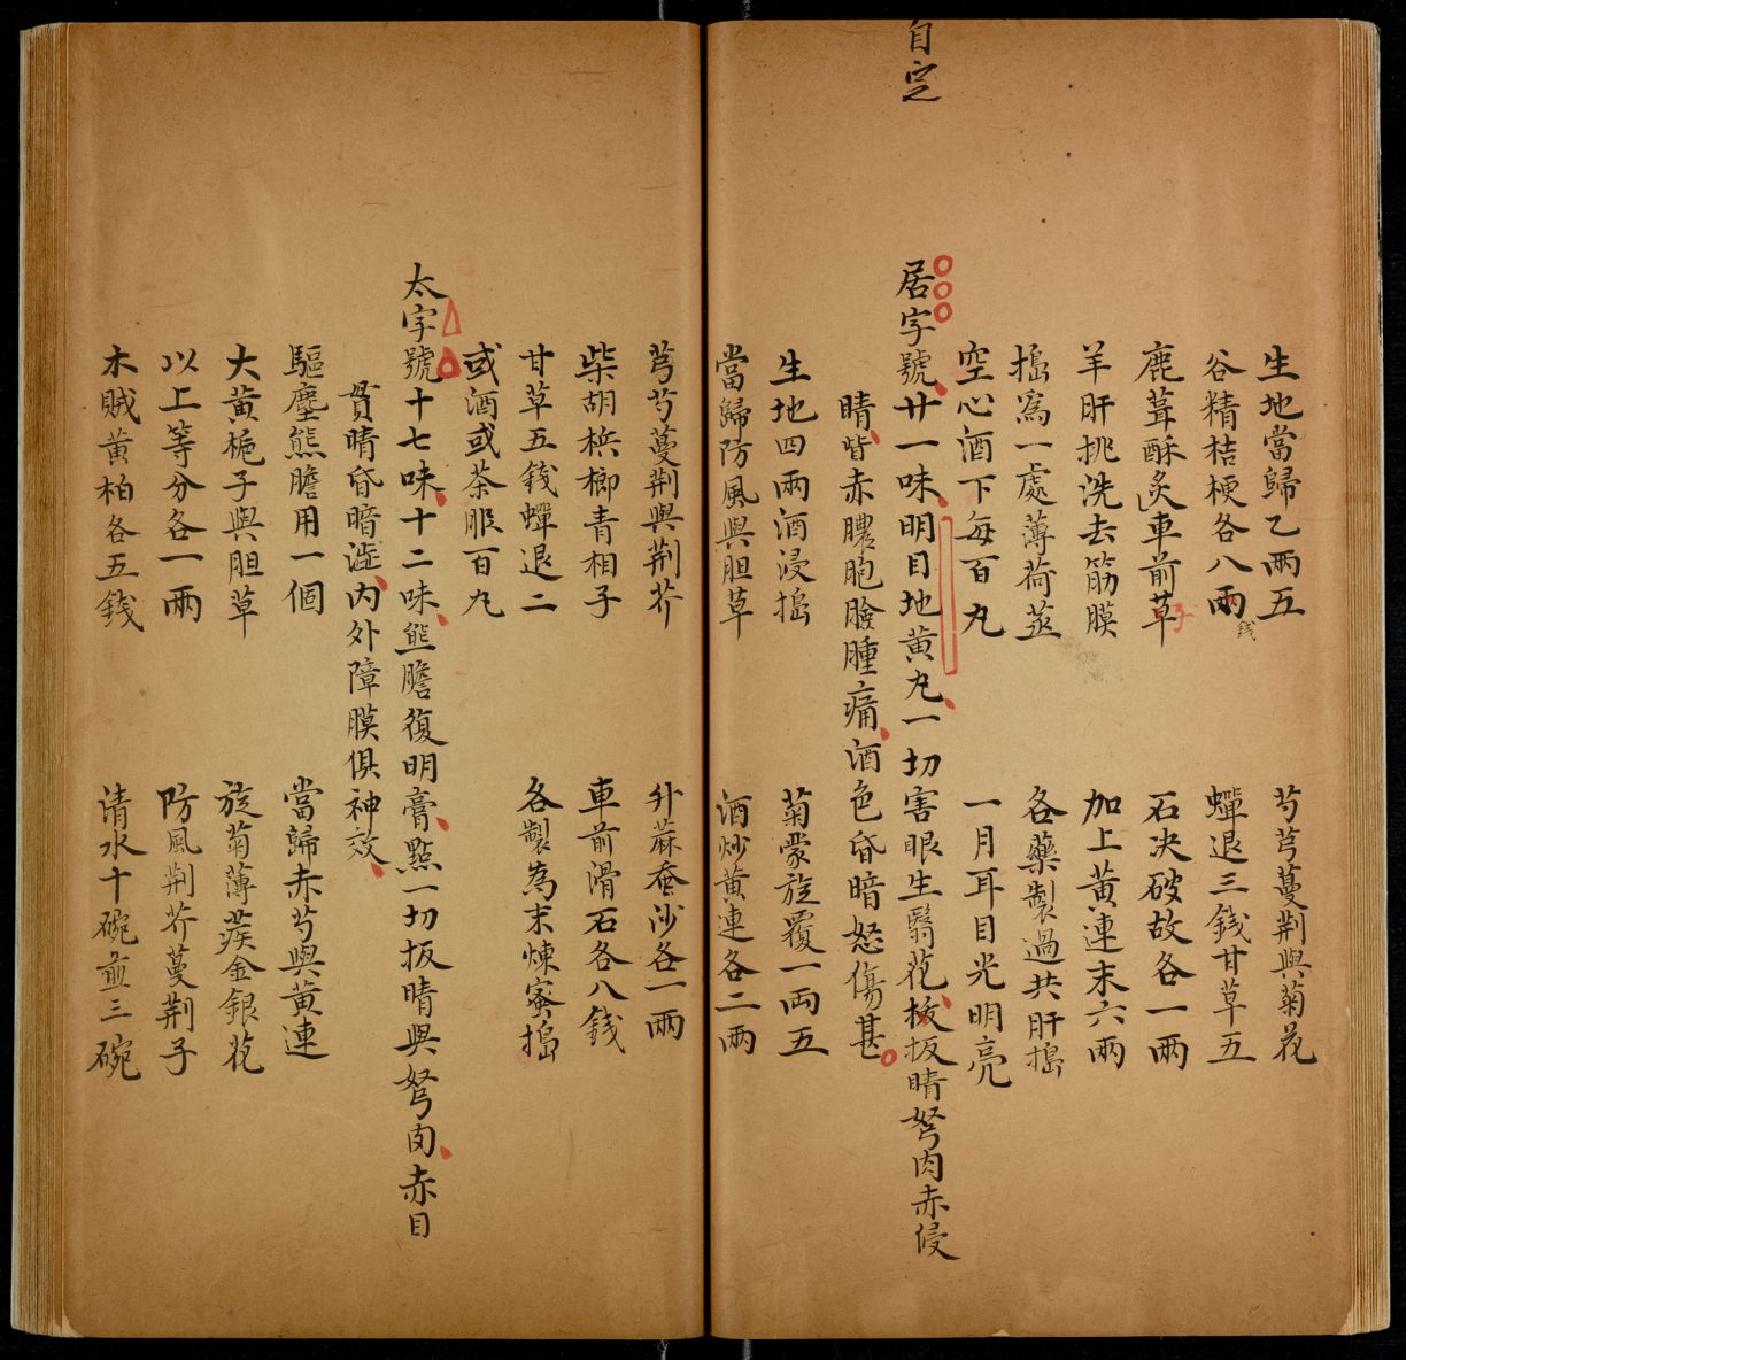 自定
生地當歸乙兩五　芍芎蔓荆與菊花
谷精桔梗各八兩錢　蟬退三錢甘草五
鹿茸酥炙車前草子　石决破故各一兩
羊肝挑洗去筋膜　加上黃連末六兩
搗爲一處薄荷蒸　各藥製過共肝搗
空心酒下每百丸　一月耳目光明亮
居字號廿一味明目地黃丸一切害眼生翳花扳扳睛弩肉赤侵
睛眥赤膿胞臉腫痛酒色昏暗怒傷甚
生地四兩酒浸搗　菊蒙旋覆一両五
當歸防風與胆草　酒炒黃連各二兩
芎芍蔓荆與荆芥　升蔴蚕沙各一兩
柴胡梹榔青相子　車前滑石各八錢
甘草五錢蟬退二　各製為末煉蜜搗
或酒或茶服百丸
太字號十七味十二味熊膽復明膏點一切扳睛與弩肉赤目
貫睛昏暗澁内外障膜俱神效
驅塵熊膽用一個　當歸赤芍與黃連
大黃梔子與胆草　旋菊薄蒺金銀花
以上等分各一兩　防風荆芥蔓荆子
木賊黃柏各五錢　清水十碗煎三碗